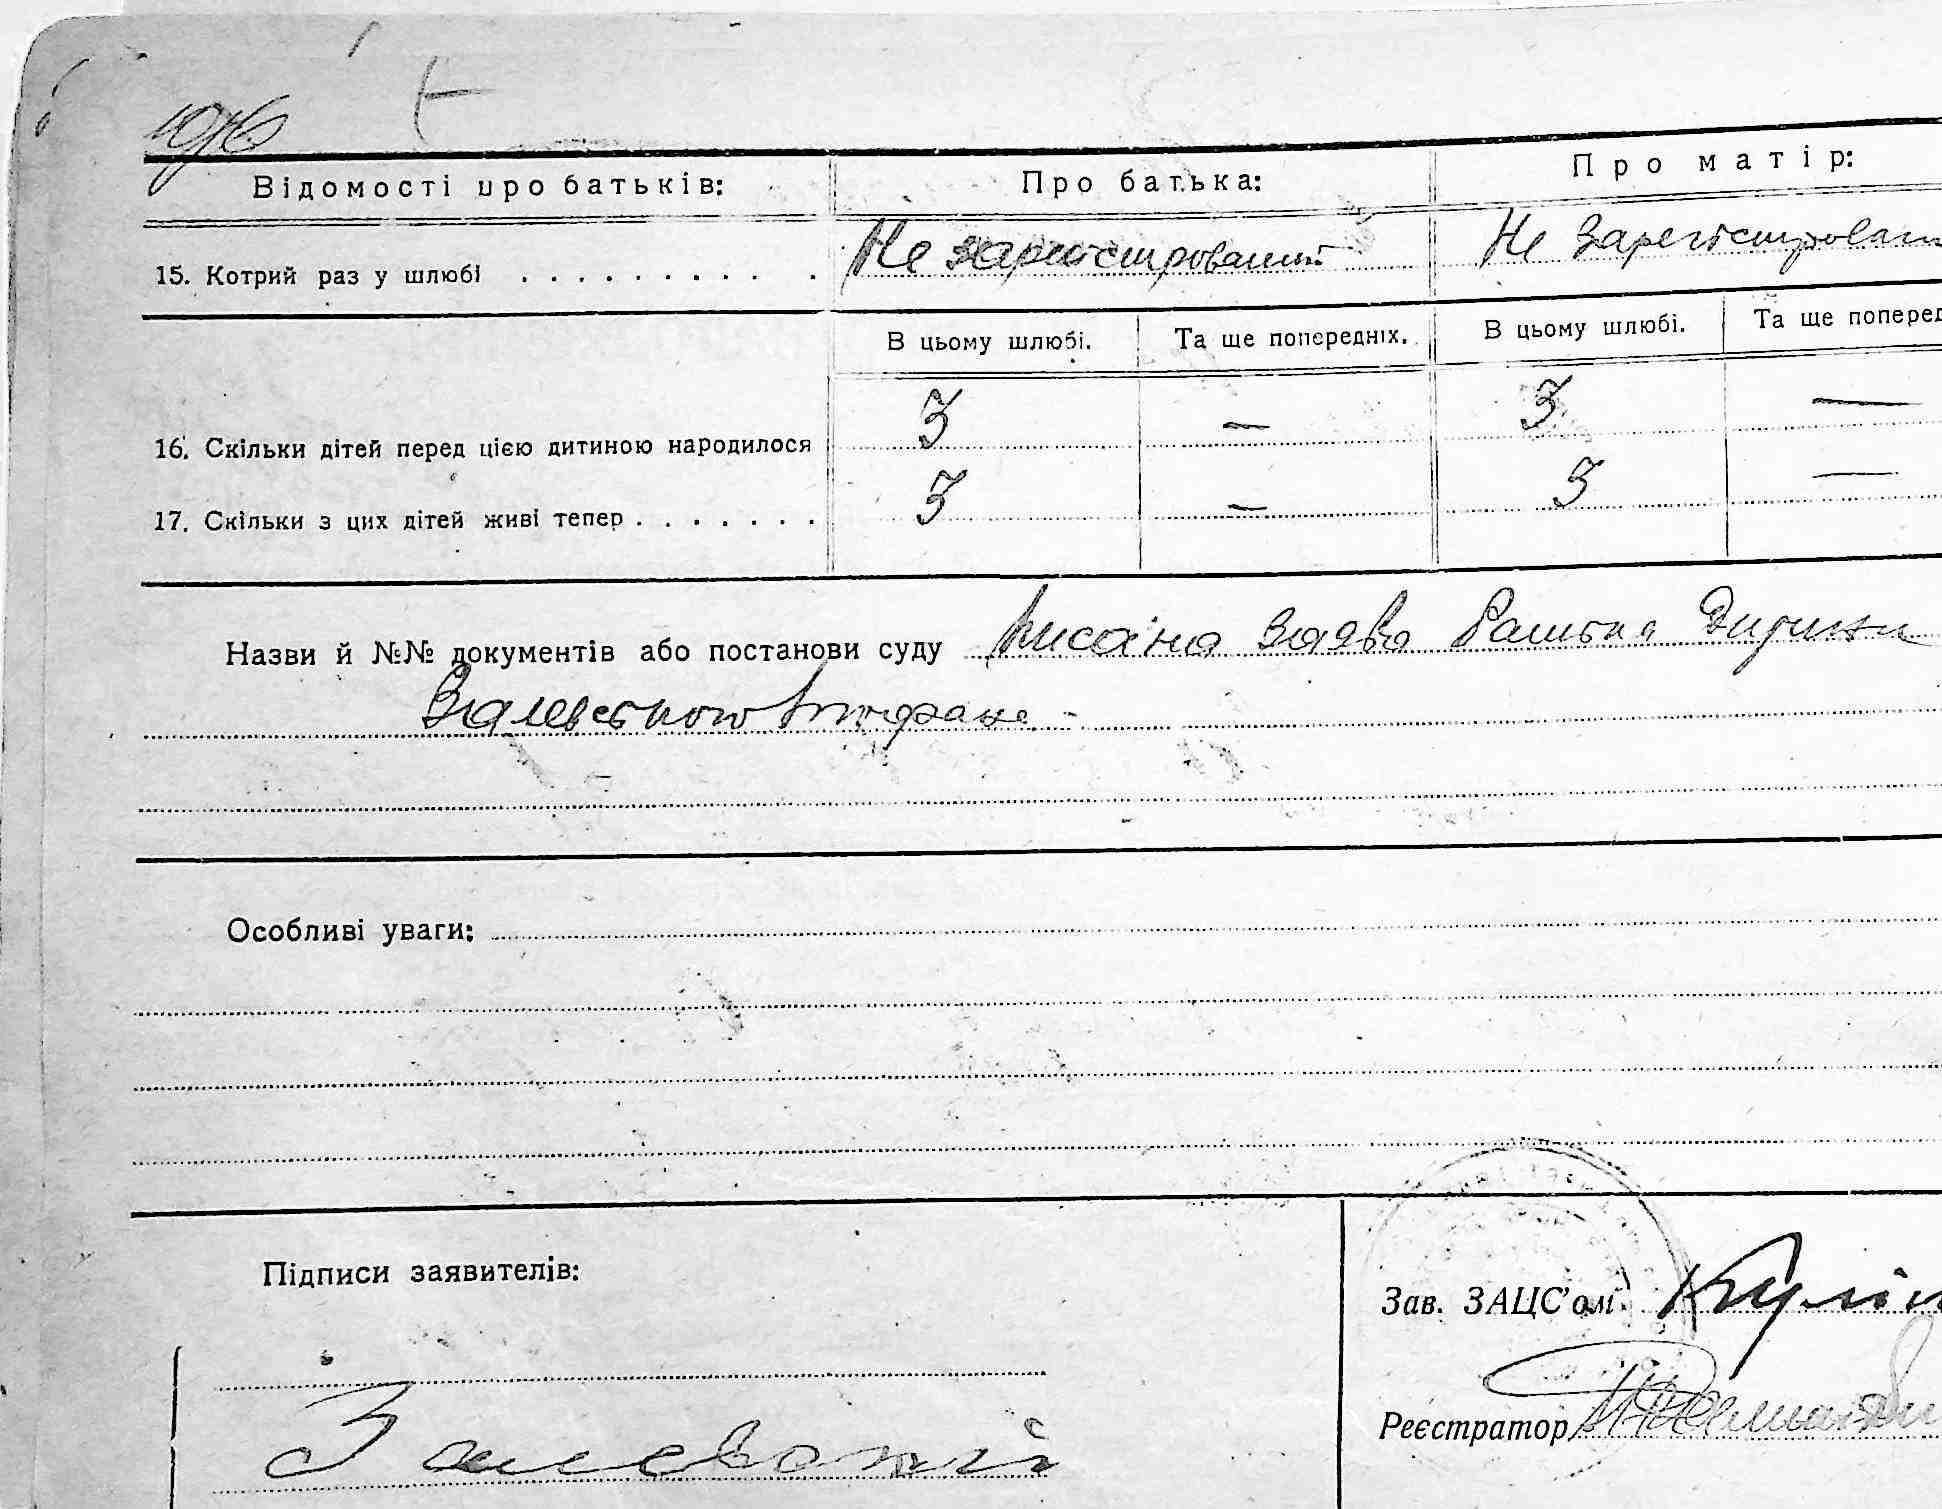 Відомості про батьків: Про батька: Про матір:
15. Котрий раз у шлюбі . . . . . . . . . . . Не зареєстрований Не зарегістрован
В цьому шлюбі. Та ще попередніх. В цьому шлюбі. Та ще поперед
16. Скільки дітей перед цією дитиною народилося 3 — 3 —
17. Скільки з цих дітей живі тепер . . . . . . . 3 — 3 —
Назви й №№ документів або постанови суду заява
Залевського
Особливі уваги:
Підписи заявителів:
Зав. ЗАЦС'олі
Залевський
Реєстратор